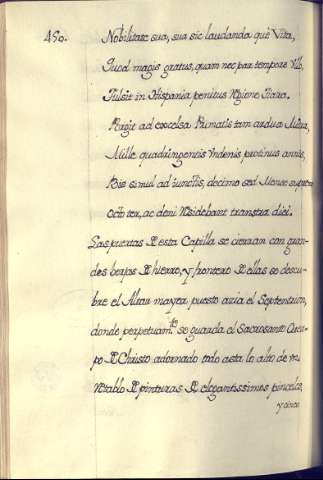 450. Nobilitate sua, sua sic laudanda quê Vita,
Quod magis gratus, quam nec par tempore Vllo
Fulsit in Hispania penitus Regione Tiara.
Pergit ad excelsa Primatis tam ardua Mitra,
Mille quadringentis Vndenis protinus annis,
Bis simul adiunctis, decimo sed Mense supremo
Octo ter, ac deni Residebant transtra diei.
Las puertas De esta Capilla se cierran con gran-
des berjas De hierro, y frontero De ellas se descu-
bre el Altar mayor puesto azia el Septentrion,
donde perpetuam.te se guarda el Sacrosanto Cuer-
po De Christo adornado todo asta lo alto de un
Retablo De pinturas De elegantissimos pinceles,
y cinco